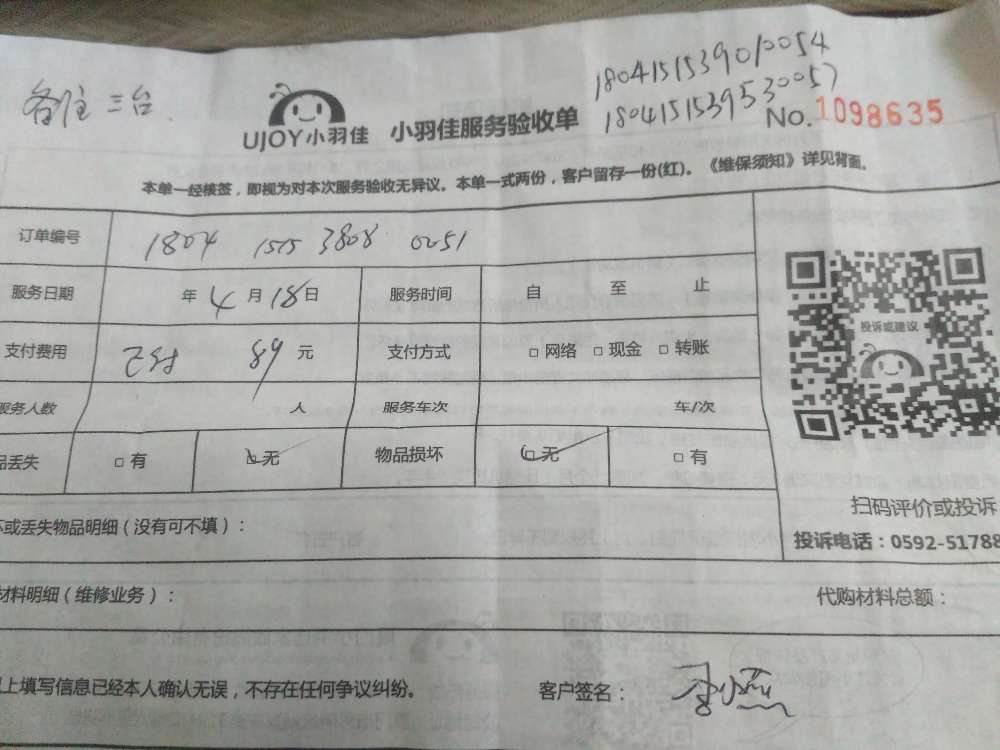 备注 三台
180415153901 0054
1804151539530057
UJOY小羽佳 小羽佳服务验收单 No.1098635
本单一经核签,即视为对本次服务验收无异议。本单一式两份,客户留存一份(红)。《维保须知》详见背面。
订单编号 1804 1515 3808 0051
服务日期 年 4 月 18 日 服务时间 自 至 止
支付费用 89 元 支付方式 □ 网络 □ 现金 □ 转账
服务人数 人 服务车次 车/次
品丢失 □ 有 □ 无 物品损坏 □ 无 □ 有
投诉或建议
扫码评价或投诉
投诉电话:0592-51788
坏或丢失物品明细(没有可不填):
材料明细(维修业务): 代购材料总额:
以上填写信息已经本人确认无误,不存在任何争议纠纷。 客户签名: